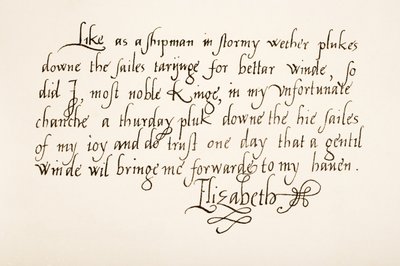 Like as a shipman in stormy wether plukes
downe the sailes tarijnge for bettar winde, so
did I, most noble Kinge, in my vnfortunate
chanche a thurday pluk downe the hie sailes
of my ioy and do trust one day that a gentil
winde wil bringe me forwarde to my hauen.
Elisabeth